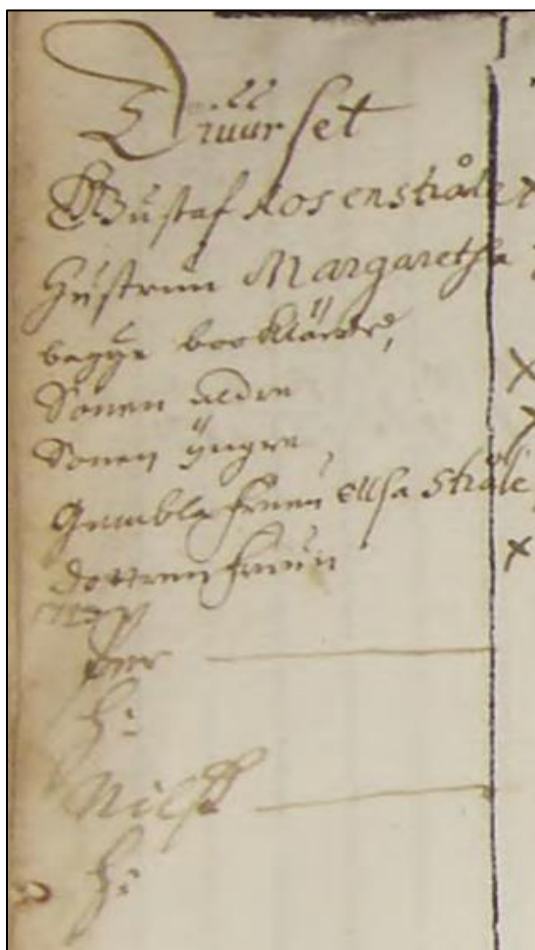 Diuurset
Gustaf Rosenstråle
Hustrun Margaretha
begge
Sonen äldre
Sonen yngre
Gambla fruen Ellsa Stråle
dottren fruun
Per
h:
Nilss
h: